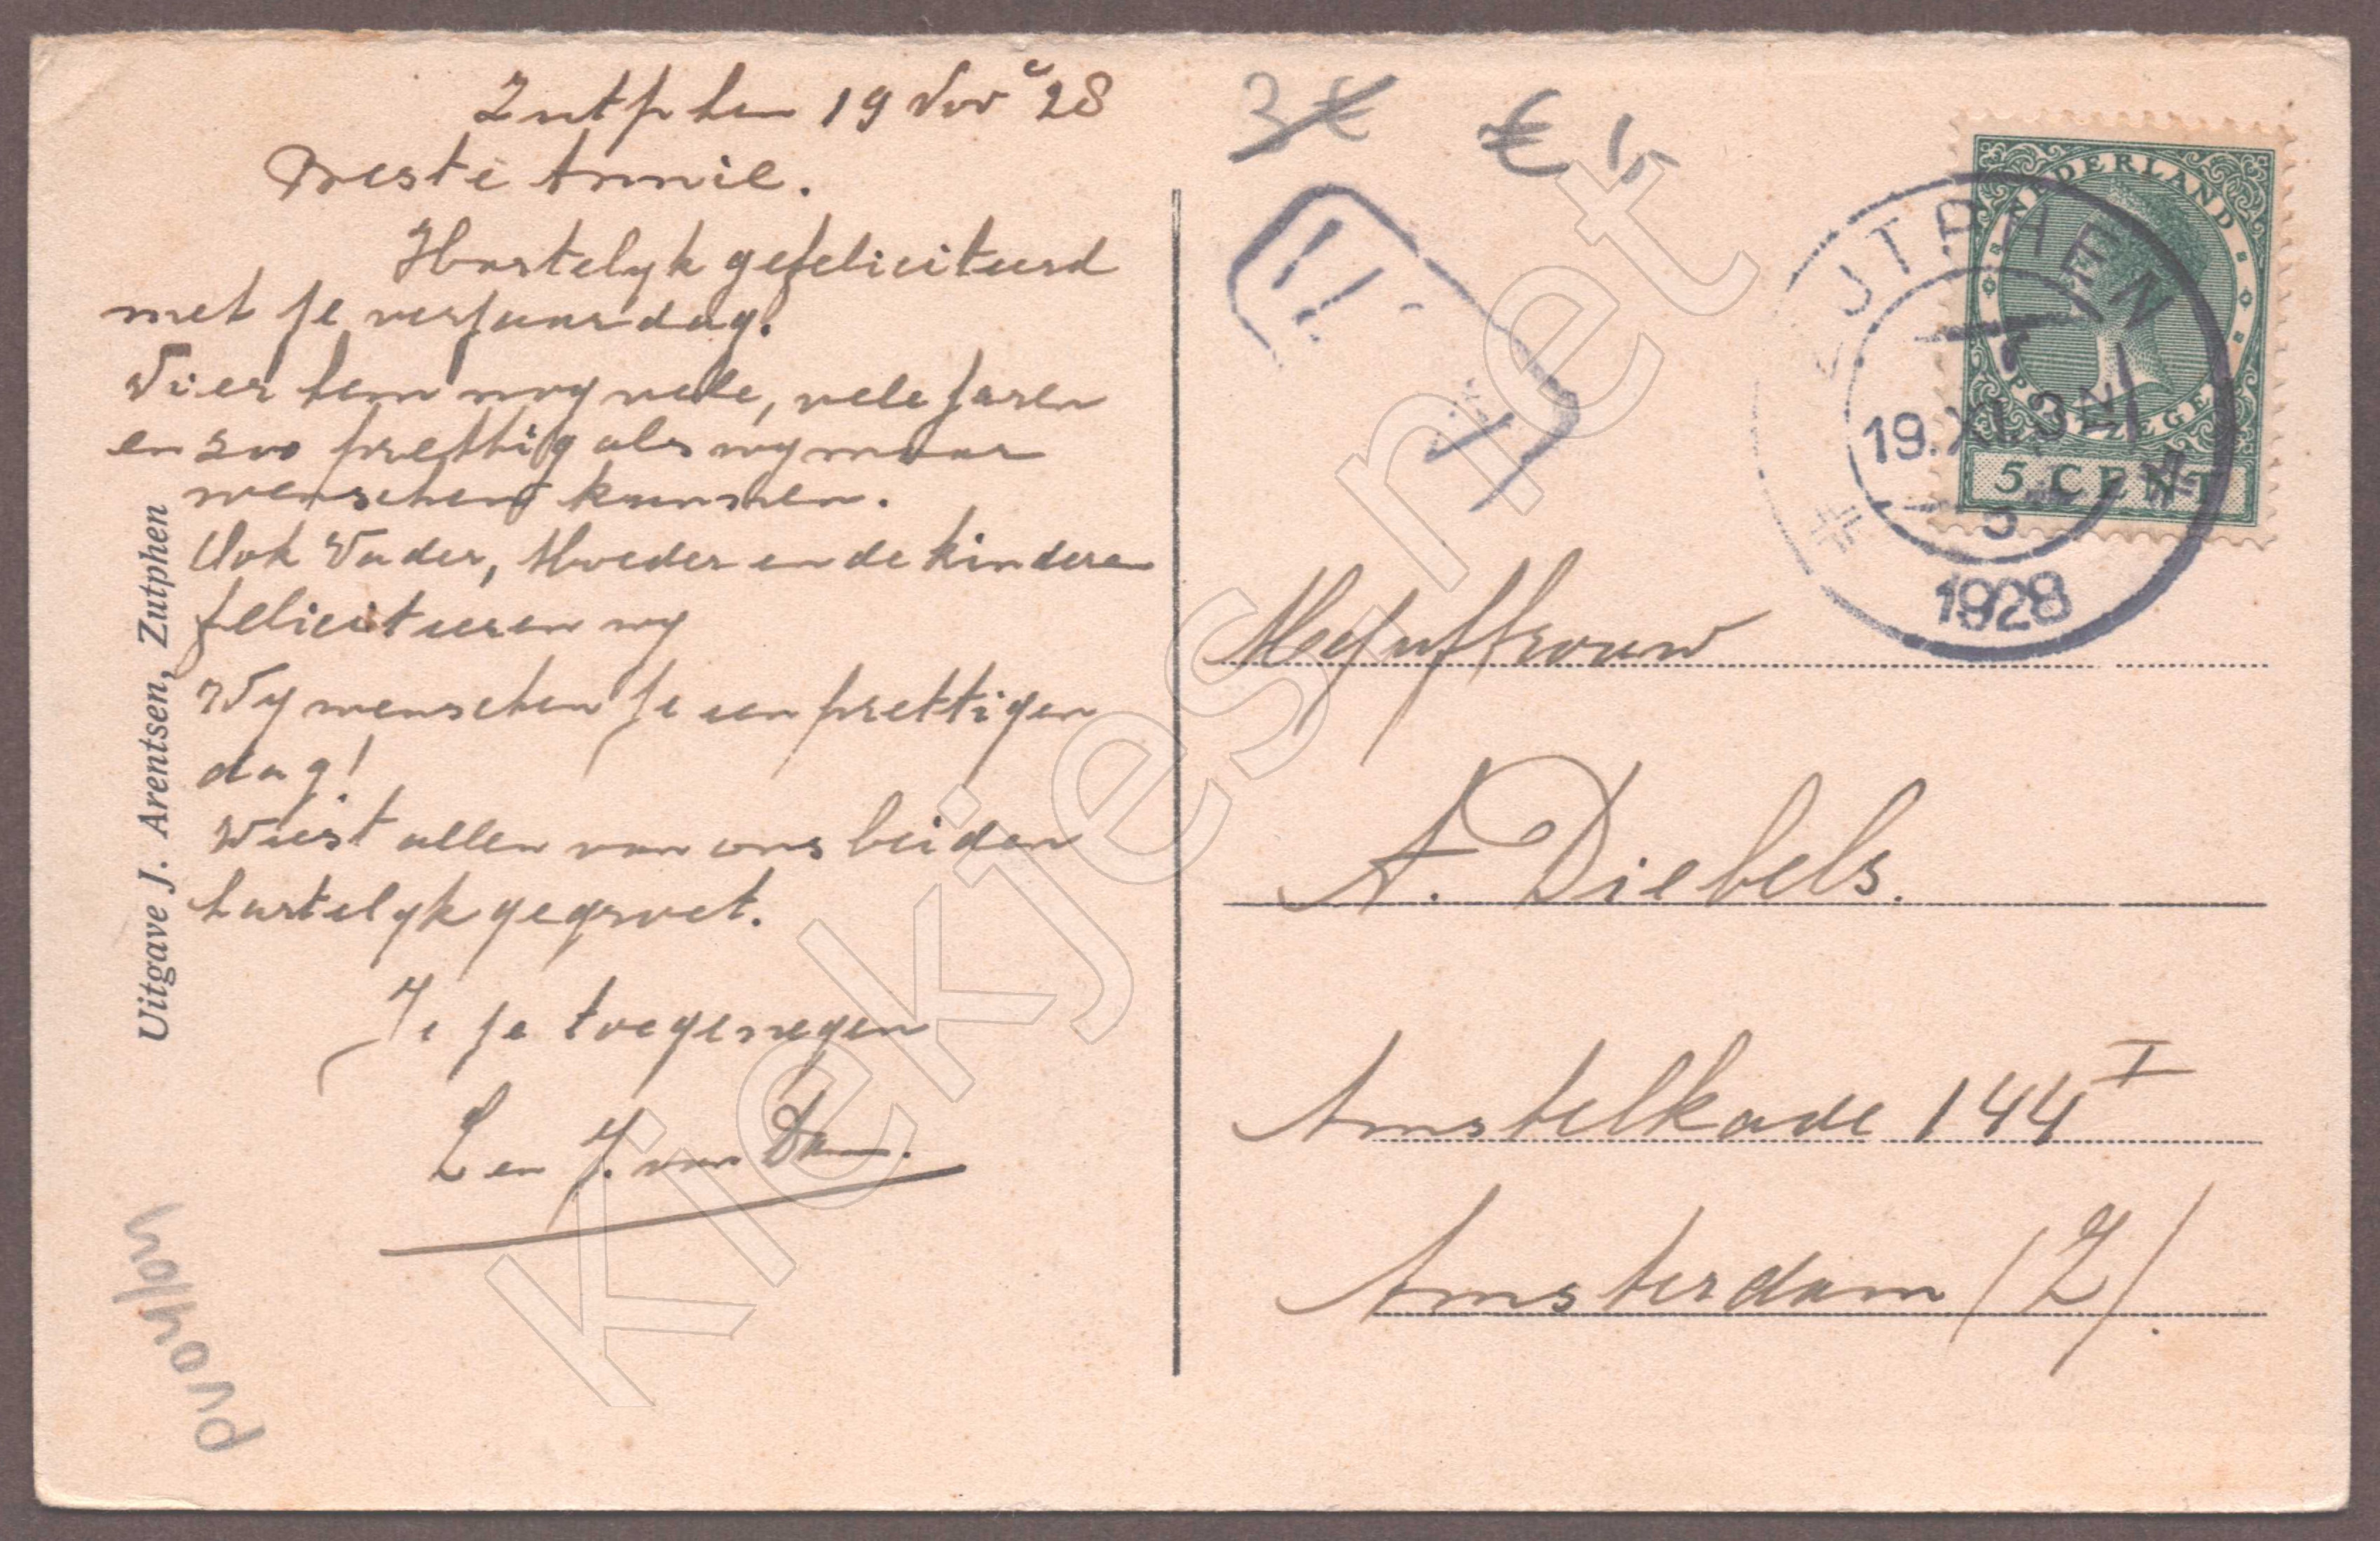 Zutphen 19 Nov '28
Beste Annie.
Hartelyk gefeliciteerd
met je verjaardag.
Vier hem nog vele, vele jaren
en zoo prettig als wy maar
wenschen kunnen.
Ook Vader, Moeder en de kinderen
feliciteeren wy
Wy wenschen je een prettigen
dag!
Weest allen van ons beiden
hartelyk gegroet.
Je toegenegen
L en J. van Dam.
Uitgave J. Arentsen, Zutphen
3 €
€ 1,-
NEDERLAND
POSTZEGEL
5 CENT
ZUTPHEN
19.XI. 3 N
5
1928
Mejuffrouw
A. Diebels.
Amstelkade 144 I
Amsterdam (Z).
Kiekjes.net